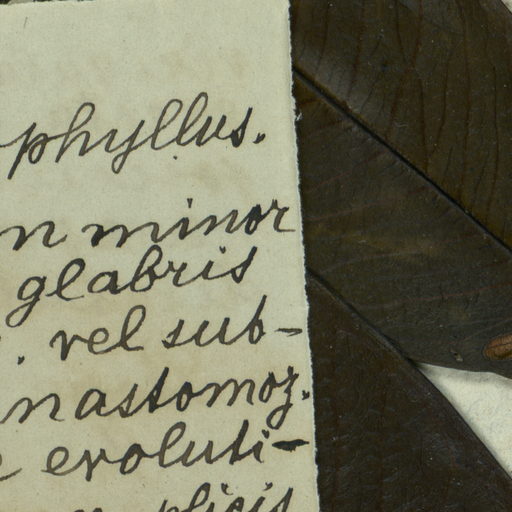 phyllus.
n minor
glabris
. vel sub-
nastomoz.
e evoluti-
plicis